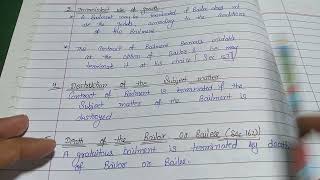 3. Inconsistent use of goods
* A Bailment may be terminated if Bailee does not
use the goods, according to the conditions
of the Bailment
* The Contract of Bailment Becomes voidable
at the option of Bailor & he may
terminate it at his choice (Sec 153)
4. Destruction of the Subject matter
Contract of Bailment is terminated if the
Subject matter of the Bailment is
destroyed
Death of the Bailor or Bailee (Sec 162)
A gratuitous bailment is terminated by death
of Bailor or Bailee.